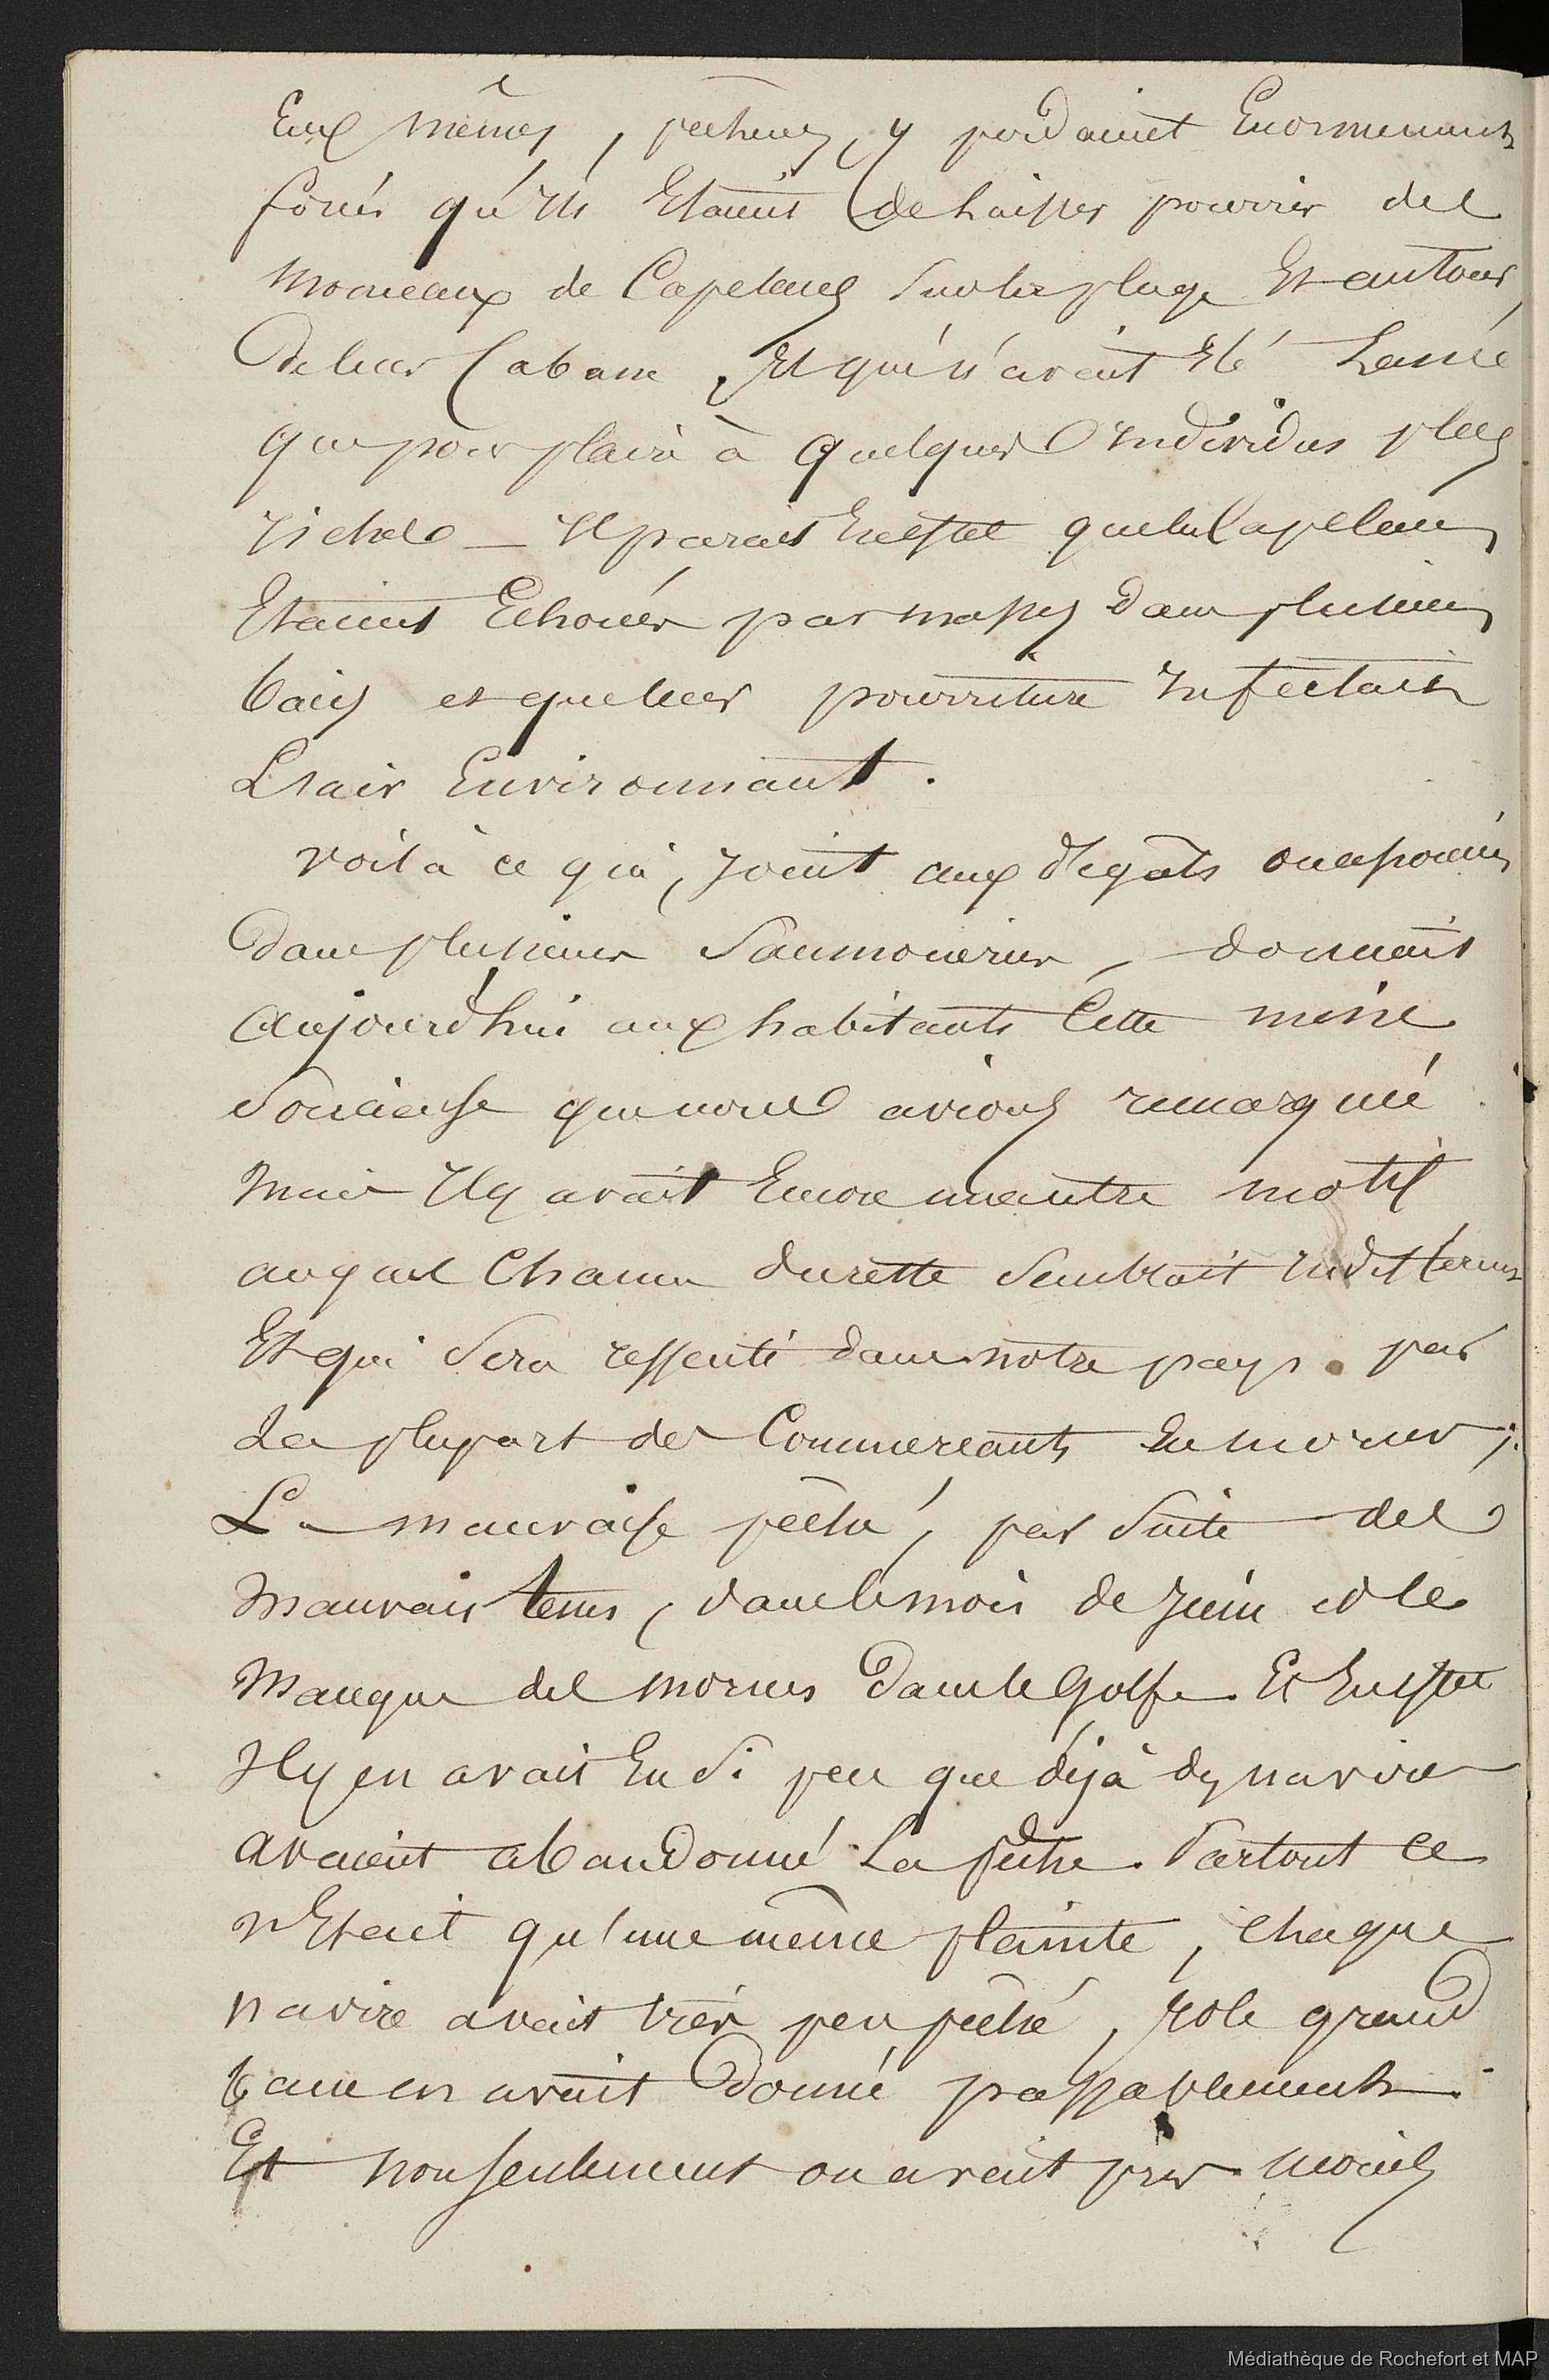 Eux mêmes, pêcheurs, y perdaient Enormement
forcés qu'ils Etaient de laisser pourrir des
morceaux de Capelans sur la plage Et autour
de leur Cabane, Et qui n'avait été
que pour plaire à quelques individus plus
riches — Il parait En effet que les Capelans
Etaient Echoués par masses dans plusieurs
baies et que leur pourriture infectait
L'air Environnant.
voilà ce qui, joint aux dégats
dans plusieurs Saumoneries, donnait
aujourd'hui aux habitants Cette mine
Soucieuse que nous avions remarqué.
mais Il y avait Encore un autre motif
auquel Chacun du reste Semblait indifferent
Et qui Sera ressenti dans notre pays par
La plupart des Commercants En morues;
La mauvaise pêche, par Suite des
mauvais tems, dans le mois de juin et le
manque des morues dans le Golfe. Et En effet
Il y en avait Eu Si peu que déjà des navires
avaient abandonné La pêche. Partout ce
n'Etait qu'une même plainte, chaque
navire avait très peu pêché, le grand
banc en avait donné passablement.
Et non seulement on avait pris moins